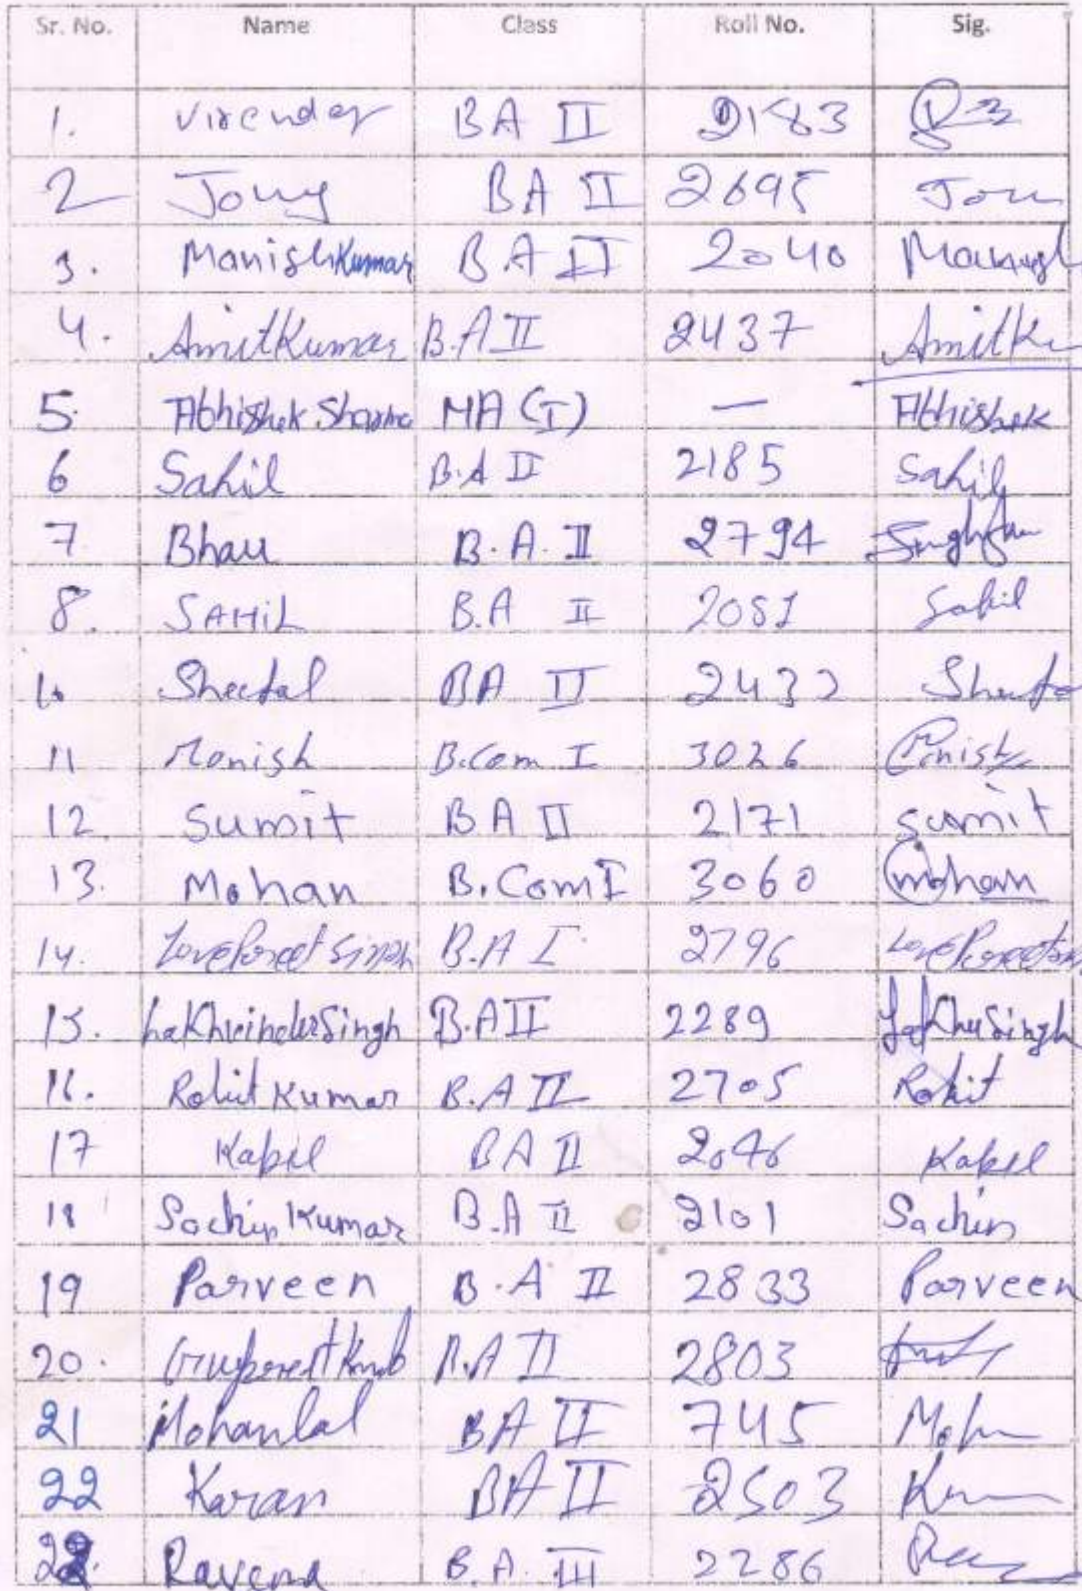 Sr. No. Name Class Roll No. Sig.
1. Virender BA II 2183
2 Jony BA II 2695 Jon
3. Manish Kumar B.A II 2040 Manish
4. Amit Kumar B.A II 2437 Amit Ku
5. Abhishek Sharma MA (I) — Abhishek
6 Sahil B.A II 2185 Sahil
7 Bhau B.A. II 2794
8. SAHiL B.A II 2081 Sahil
10 Sheetal BA II 2432 Sheeta
11 Monish B.Com I 3026
12. Sumit BA II 2171 Sumit
13. Mohan B.Com I 3060 mohan
14. LovePreet Singh B.A I 2796 LovePreet Singh
15. Lakhwinder Singh B.A II 2289 Singh
16. Rohit Kumar B.A II 2705 Rohit
17 Kapil BA II 2046 Kapil
18 Sachin Kumar B.A II 2101 Sachin
19 Parveen B.A II 2833 Parveen
20. B.A II 2803
21 Mohanlal BA II 745
22 Karan BA II 2503
B.A. III 2286